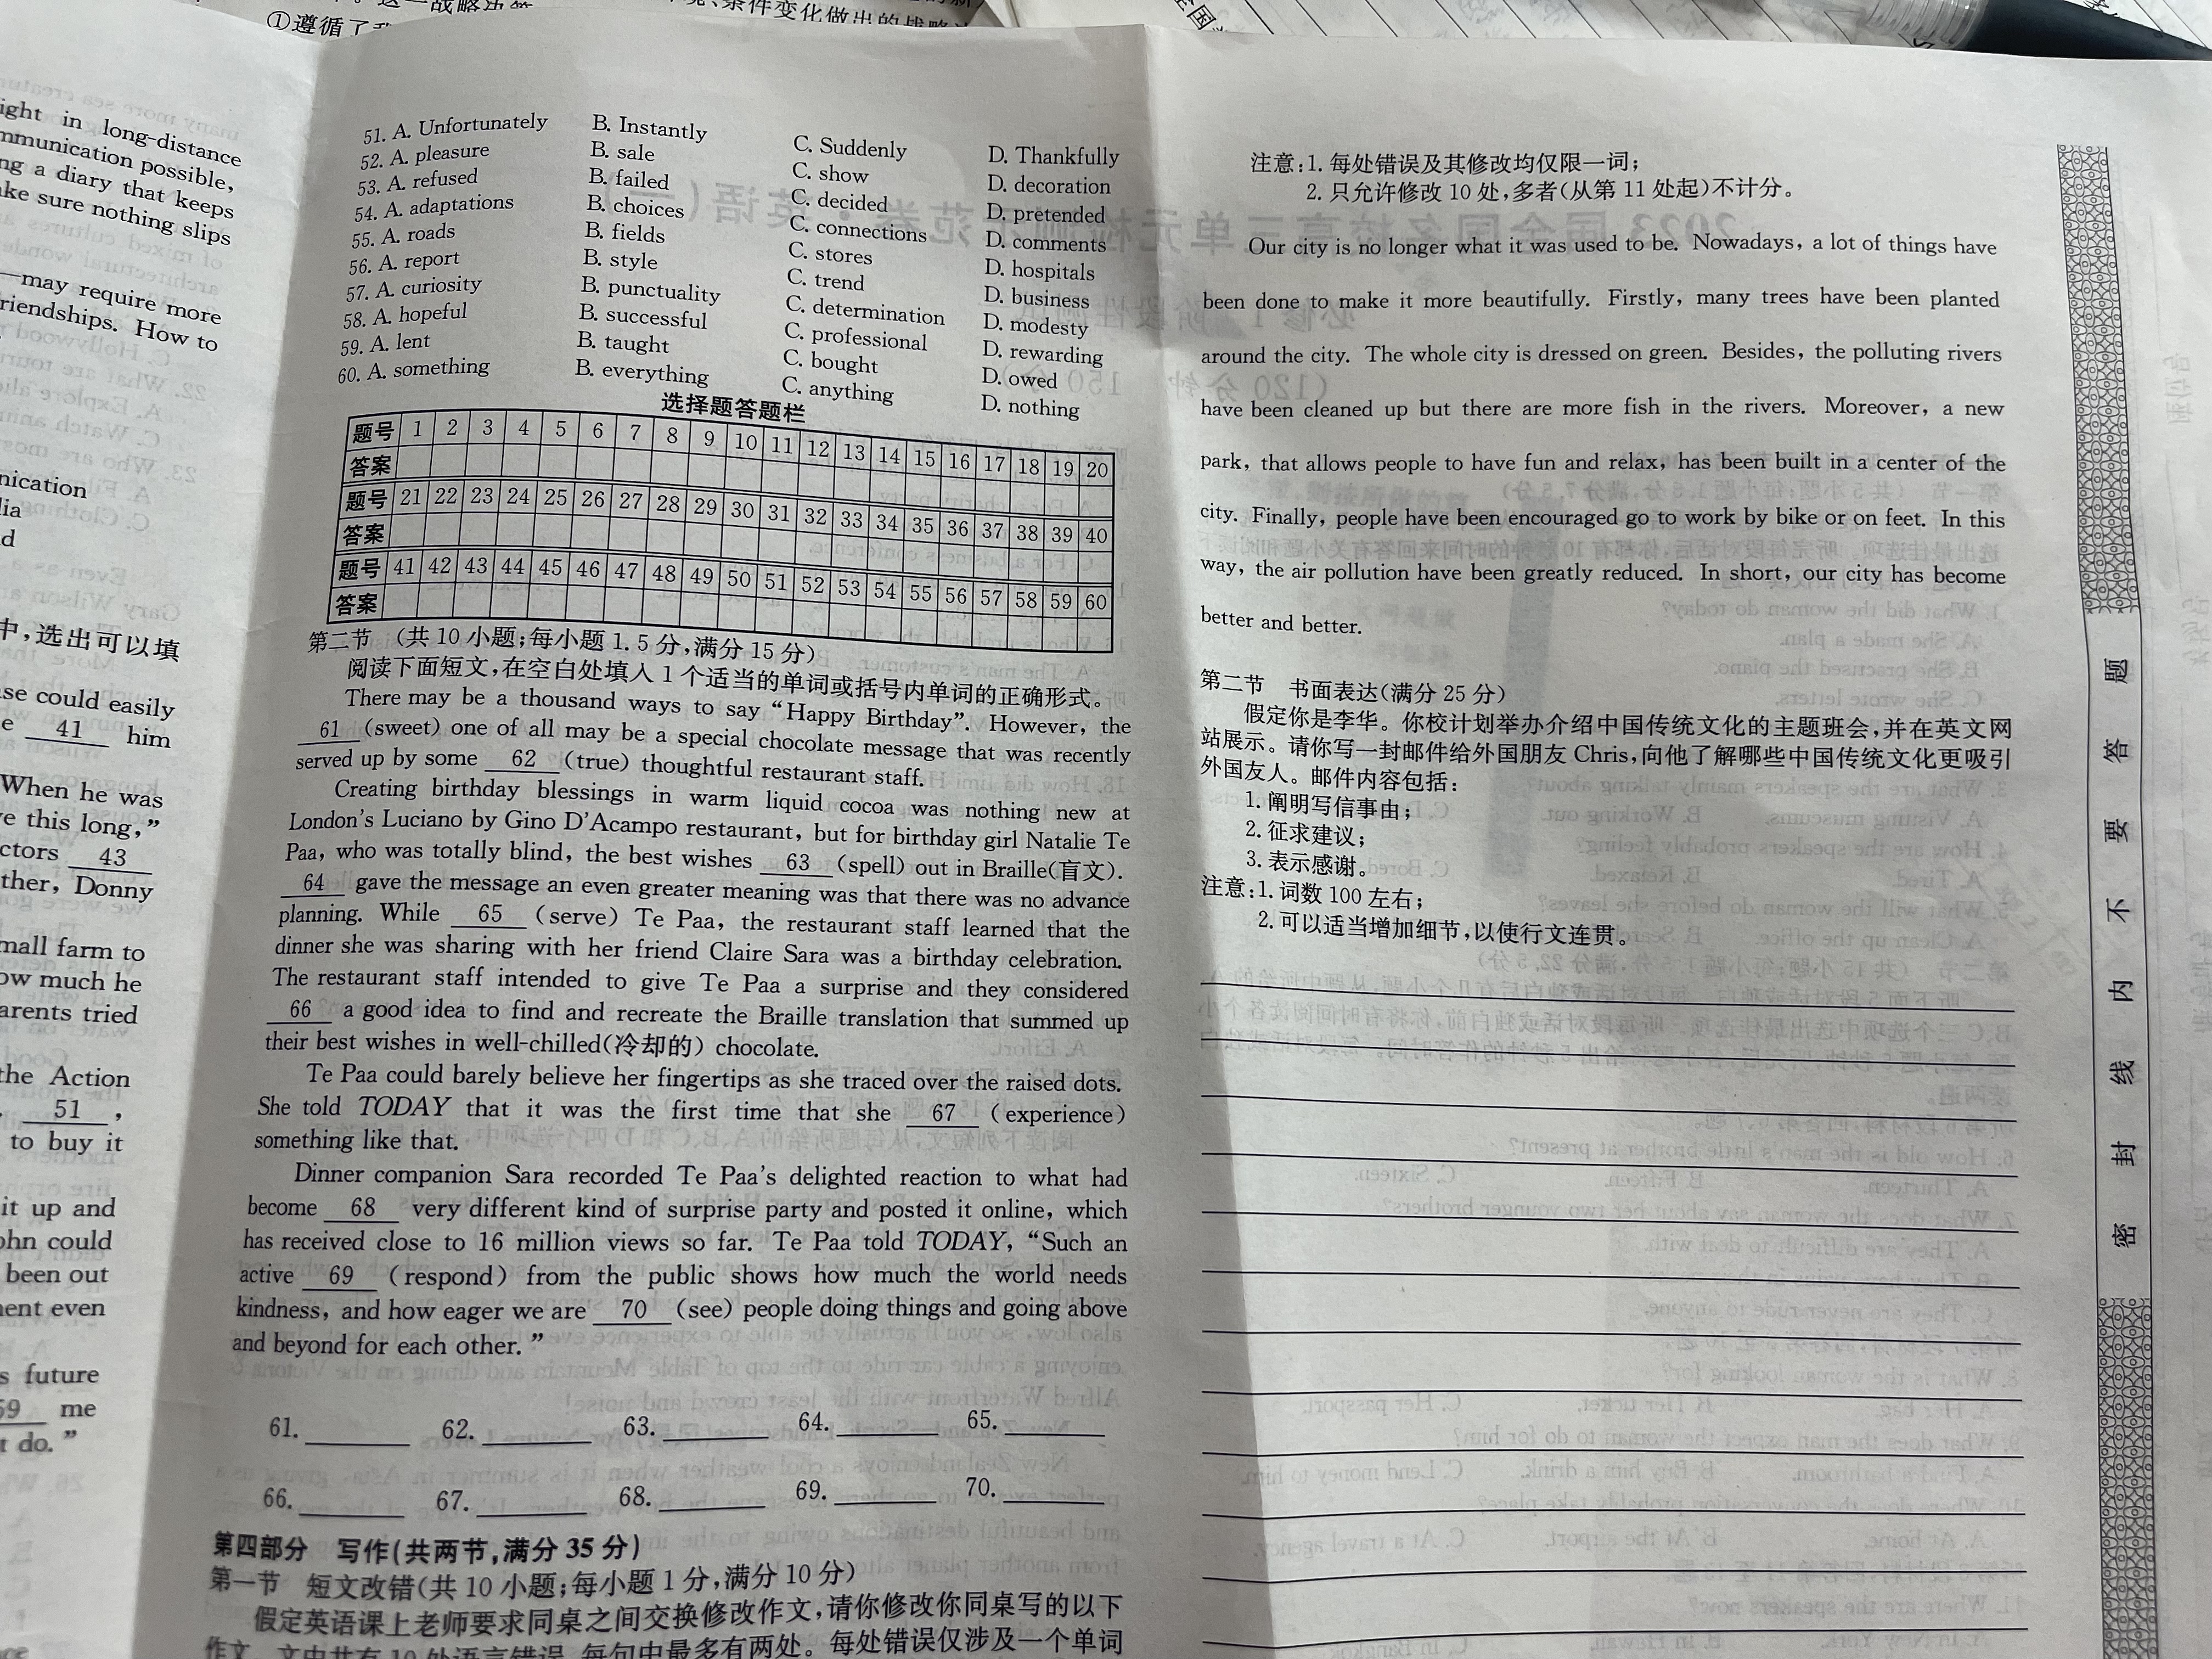 ①遵循了
条件变化做出的战略
ight in long-distance
mmunication possible,
ng a diary that keeps
ake sure nothing slips
—may require more
riendships. How to
nication
lia
d
中,选出可以填
se could easily
e 41 him
When he was
e this long,”
ctors 43
ther, Donny
mall farm to
ow much he
arents tried
the Action
51 ,
to buy it
it up and
ohn could
been out
ent even
s future
59 me
t do.”
51. A. Unfortunately B. Instantly C. Suddenly D. Thankfully
52. A. pleasure B. sale C. show D. decoration
53. A. refused B. failed C. decided D. pretended
54. A. adaptations B. choices C. connections D. comments
55. A. roads B. fields C. stores D. hospitals
56. A. report B. style C. trend D. business
57. A. curiosity B. punctuality C. determination D. modesty
58. A. hopeful B. successful C. professional D. rewarding
59. A. lent B. taught C. bought D. owed
60. A. something B. everything C. anything D. nothing
选择题答题栏
题号 1 2 3 4 5 6 7 8 9 10 11 12 13 14 15 16 17 18 19 20
答案
题号 21 22 23 24 25 26 27 28 29 30 31 32 33 34 35 36 37 38 39 40
答案
题号 41 42 43 44 45 46 47 48 49 50 51 52 53 54 55 56 57 58 59 60
答案
第二节 (共 10 小题;每小题 1.5 分,满分 15 分)
阅读下面短文,在空白处填入 1 个适当的单词或括号内单词的正确形式。
There may be a thousand ways to say “Happy Birthday”. However, the
61 (sweet) one of all may be a special chocolate message that was recently
served up by some 62 (true) thoughtful restaurant staff.
Creating birthday blessings in warm liquid cocoa was nothing new at
London's Luciano by Gino D'Acampo restaurant, but for birthday girl Natalie Te
Paa, who was totally blind, the best wishes 63 (spell) out in Braille(盲文).
64 gave the message an even greater meaning was that there was no advance
planning. While 65 (serve) Te Paa, the restaurant staff learned that the
dinner she was sharing with her friend Claire Sara was a birthday celebration.
The restaurant staff intended to give Te Paa a surprise and they considered
66 a good idea to find and recreate the Braille translation that summed up
their best wishes in well-chilled(冷却的) chocolate.
Te Paa could barely believe her fingertips as she traced over the raised dots.
She told TODAY that it was the first time that she 67 (experience)
something like that.
Dinner companion Sara recorded Te Paa's delighted reaction to what had
become 68 very different kind of surprise party and posted it online, which
has received close to 16 million views so far. Te Paa told TODAY, “Such an
active 69 (respond) from the public shows how much the world needs
kindness, and how eager we are 70 (see) people doing things and going above
and beyond for each other.”
61. 62. 63. 64. 65.
66. 67. 68. 69. 70.
第四部分 写作(共两节,满分 35 分)
第一节 短文改错(共 10 小题;每小题 1 分,满分 10 分)
假定英语课上老师要求同桌之间交换修改作文,请你修改你同桌写的以下
作文。文中共有 10 处语言错误,每句中最多有两处。每处错误仅涉及一个单词
注意:1. 每处错误及其修改均仅限一词;
2. 只允许修改 10 处,多者(从第 11 处起)不计分。
Our city is no longer what it was used to be. Nowadays, a lot of things have
been done to make it more beautifully. Firstly, many trees have been planted
around the city. The whole city is dressed on green. Besides, the polluting rivers
have been cleaned up but there are more fish in the rivers. Moreover, a new
park, that allows people to have fun and relax, has been built in a center of the
city. Finally, people have been encouraged go to work by bike or on feet. In this
way, the air pollution have been greatly reduced. In short, our city has become
better and better.
第二节 书面表达(满分 25 分)
假定你是李华。你校计划举办介绍中国传统文化的主题班会,并在英文网
站展示。请你写一封邮件给外国朋友 Chris,向他了解哪些中国传统文化更吸引
外国友人。邮件内容包括:
1. 阐明写信事由;
2. 征求建议;
3. 表示感谢。
注意:1. 词数 100 左右;
2. 可以适当增加细节,以使行文连贯。
密 封 线 内 不 要 答 题